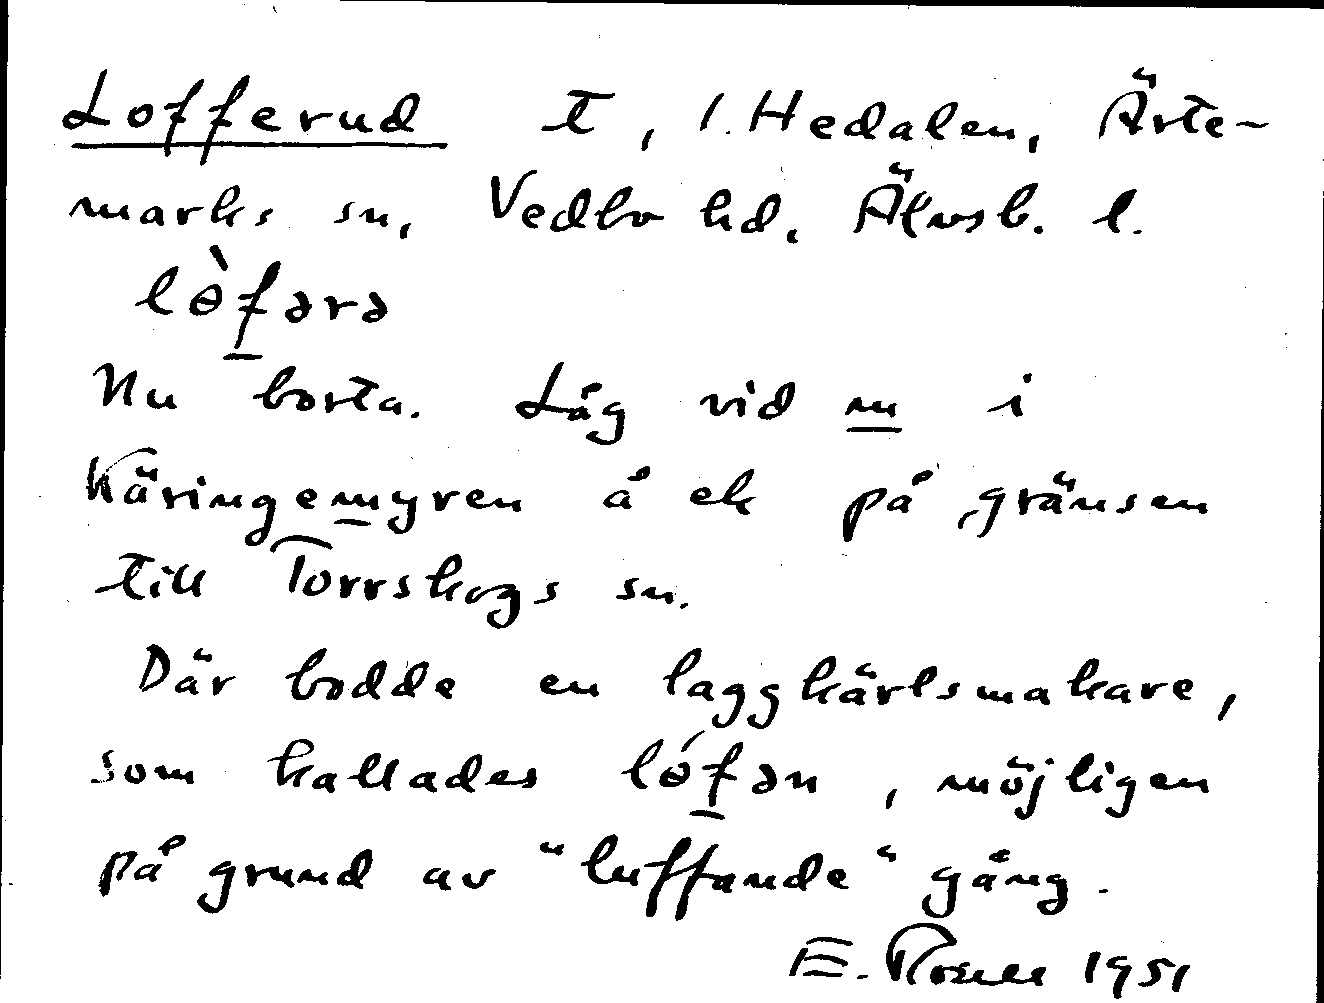 Lofferud t, l. Hedalen, Ärte-
marks sn, Vedbo hd, Älvsb. l.
lɵ̀f̲ərə
Nu borta. Låg vid m̲ i
Käringem̲yren å ek på gränsen
till Torrskogs sn.
Där bodde en laggkärlsmakare,
som kallades lɵ́f̲ən, möjligen
på grund av "luffande" gång.
E. Rosell 1951